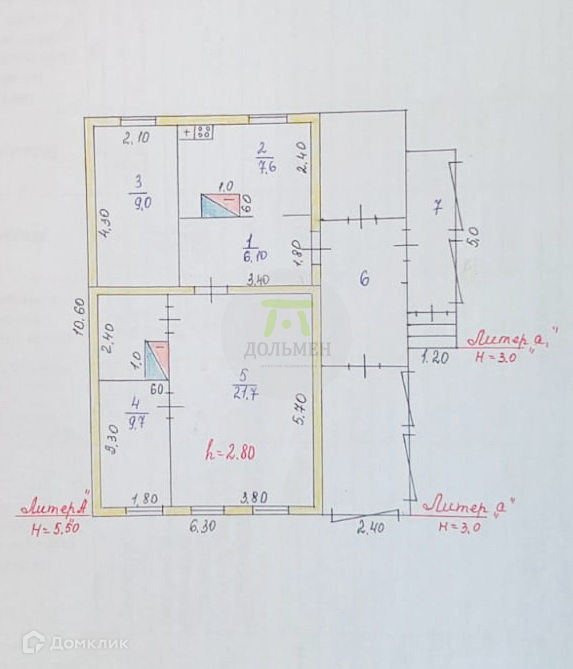 2,10
+
2
7,6
2,40
3
9,0
1,0
60
7
4,30
1
6,10
1,80
5,0
3,40
6
10.60
2,40
1,0
ДОЛЬМЕН
Литер а₁"
H=3,0
1.20
60
5
21,7
4
9,7
5,70
3,30
h=2.80
Литер А"
H=5,50
1,80
3,80
6.30
2,40
Литер а"
H=3,0
Домклик